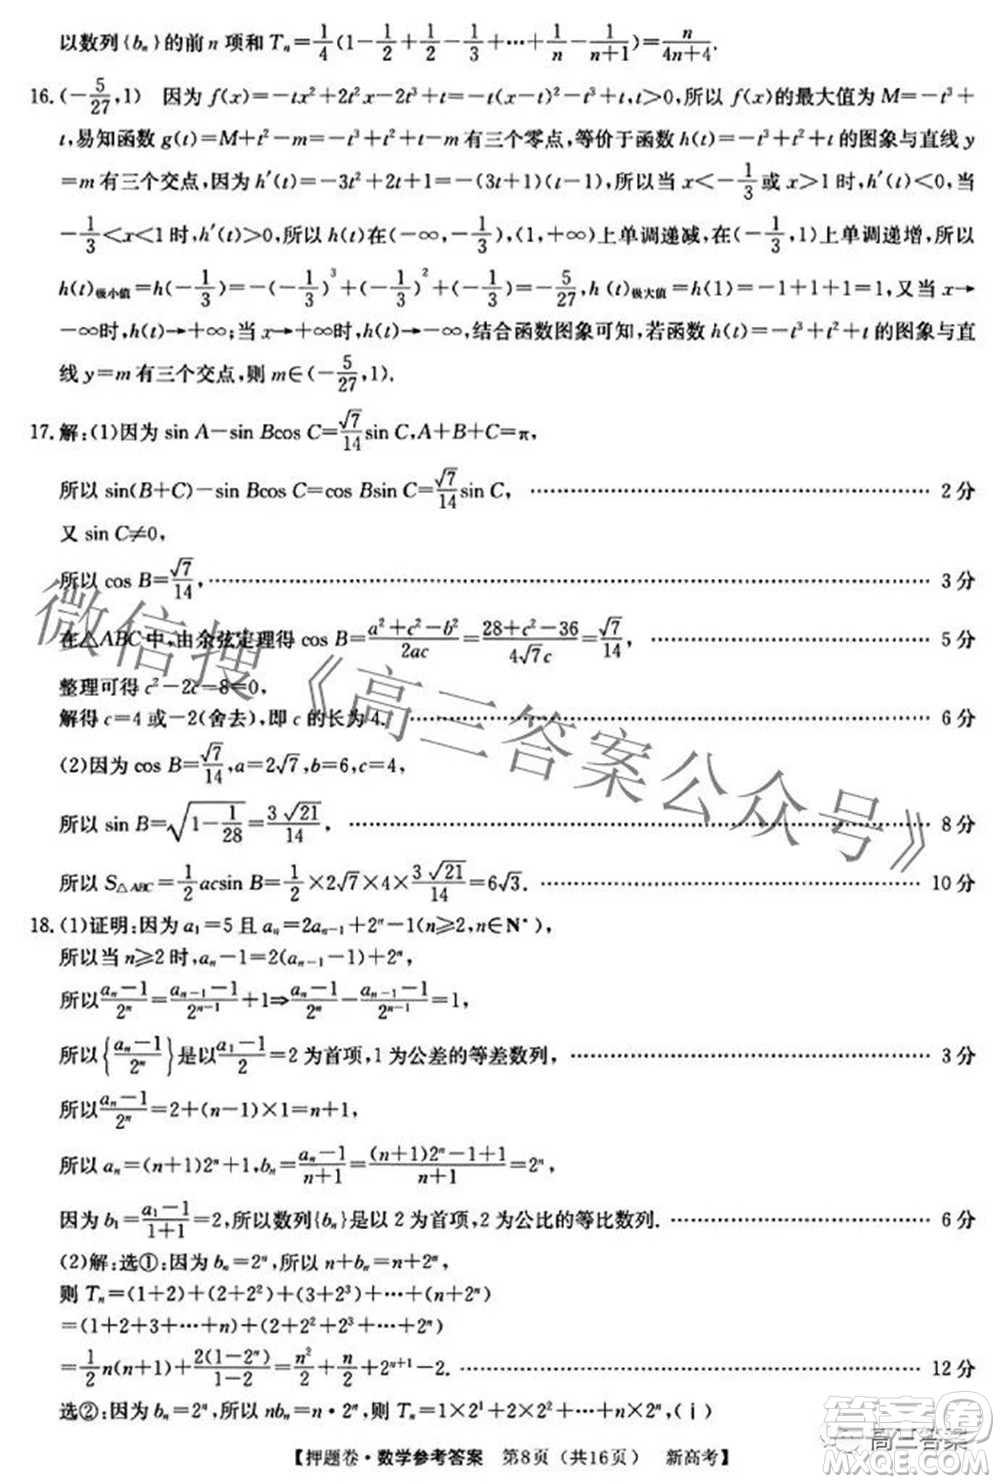 以数列{bₙ}的前n项和Tₙ=1/4(1-1/2+1/2-1/3+…+1/n-1/(n+1))=n/(4n+4).
16.(-5/27,1)　因为f(x)=-tx²+2t²x-2t³+t=-t(x-t)²-t³+t,t>0,所以f(x)的最大值为M=-t³+
t,易知函数g(t)=M+t²-m=-t³+t²+t-m有三个零点,等价于函数h(t)=-t³+t²+t的图象与直线y
=m有三个交点,因为h′(t)=-3t²+2t+1=-(3t+1)(t-1),所以当x<-1/3或x>1时,h′(t)<0,当
-1/3<x<1时,h′(t)>0,所以h(t)在(-∞,-1/3),(1,+∞)上单调递减,在(-1/3,1)上单调递增,所以
h(t)极小值=h(-1/3)=-(-1/3)³+(-1/3)²+(-1/3)=-5/27,h(t)极大值=h(1)=-1+1+1=1,又当x→
-∞时,h(t)→+∞;当x→+∞时,h(t)→-∞,结合函数图象可知,若函数h(t)=-t³+t²+t的图象与直
线y=m有三个交点,则m∈(-5/27,1).
17.解:(1)因为sin A-sin Bcos C=√7/14 sin C,A+B+C=π,
所以sin(B+C)-sin Bcos C=cos Bsin C=√7/14 sin C, ………… 2分
又sin C≠0,
所以cos B=√7/14, ………… 3分
在△ABC中,由余弦定理得cos B=(a²+c²-b²)/2ac=(28+c²-36)/4√7c=√7/14, ………… 5分
整理可得c²-2c-8=0,
解得c=4或-2(舍去),即c的长为4. ………… 6分
(2)因为cos B=√7/14,a=2√7,b=6,c=4,
所以sin B=√(1-1/28)=3√21/14, ………… 8分
所以S△ABC=1/2 acsin B=1/2×2√7×4×3√21/14=6√3. ………… 10分
18.(1)证明:因为a₁=5且aₙ=2aₙ₋₁+2ⁿ-1(n≥2,n∈N*),
所以当n≥2时,aₙ-1=2(aₙ₋₁-1)+2ⁿ,
所以(aₙ-1)/2ⁿ=(aₙ₋₁-1)/2ⁿ⁻¹+1⇒(aₙ-1)/2ⁿ-(aₙ₋₁-1)/2ⁿ⁻¹=1,
所以{(aₙ-1)/2ⁿ}是以(a₁-1)/2=2为首项,1为公差的等差数列, ………… 3分
所以(aₙ-1)/2ⁿ=2+(n-1)×1=n+1,
所以aₙ=(n+1)2ⁿ+1,bₙ=(aₙ-1)/(n+1)=((n+1)2ⁿ-1+1)/(n+1)=2ⁿ,
因为b₁=(a₁-1)/(1+1)=2,所以数列{bₙ}是以2为首项,2为公比的等比数列. ………… 6分
(2)解:选①:因为bₙ=2ⁿ,所以n+bₙ=n+2ⁿ,
则Tₙ=(1+2)+(2+2²)+(3+2³)+…+(n+2ⁿ)
=(1+2+3+…+n)+(2+2²+2³+…+2ⁿ)
=1/2 n(n+1)+2(1-2ⁿ)/(1-2)=n²/2+n/2+2ⁿ⁺¹-2. ………… 12分
选②:因为bₙ=2ⁿ,所以nbₙ=n·2ⁿ,则Tₙ=1×2¹+2×2²+3×2³+…+n×2ⁿ,(ⅰ)
【押题卷·数学参考答案　第8页(共16页)　新高考】
微信搜《高三答案公众号》
高三答案
答案圈
MXQE.COM